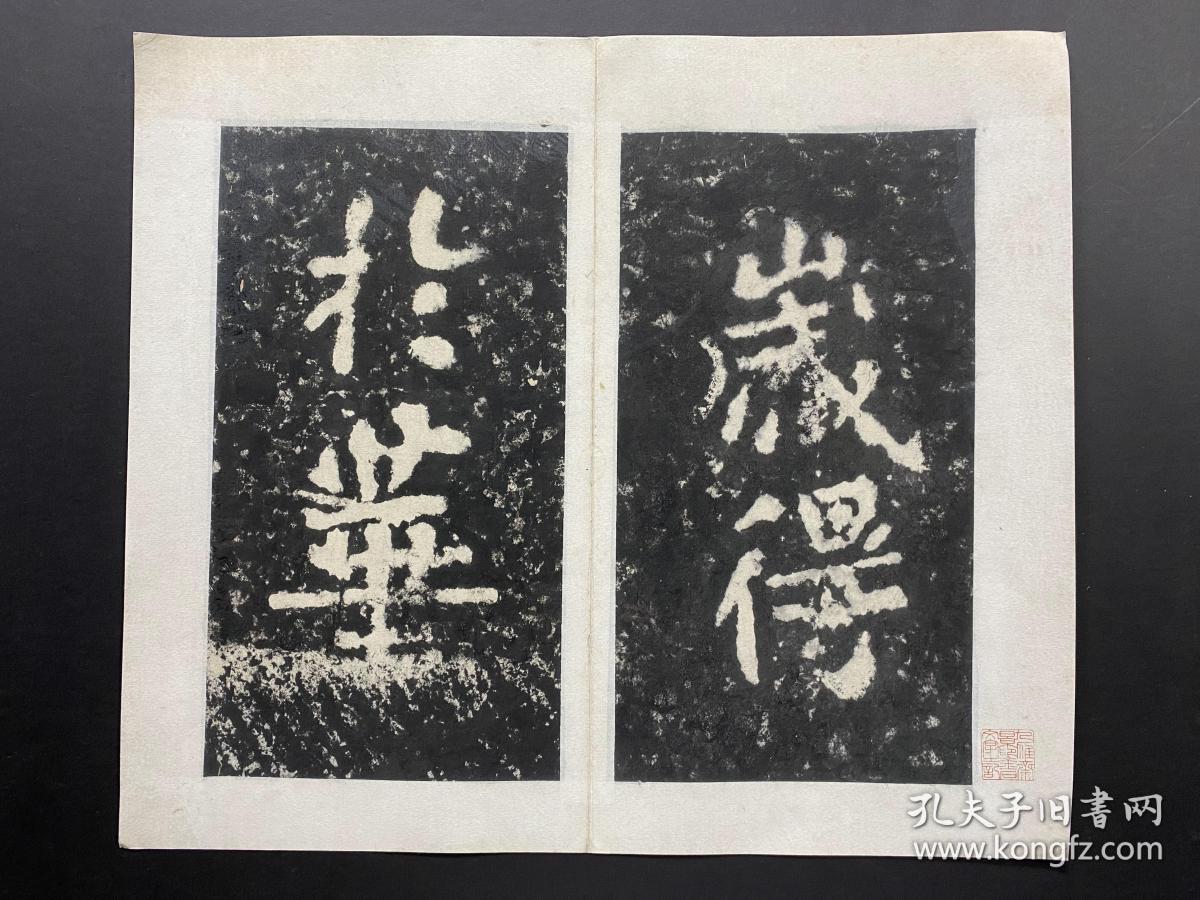 歲得
於華
孔夫子旧書网
www.kongfz.com